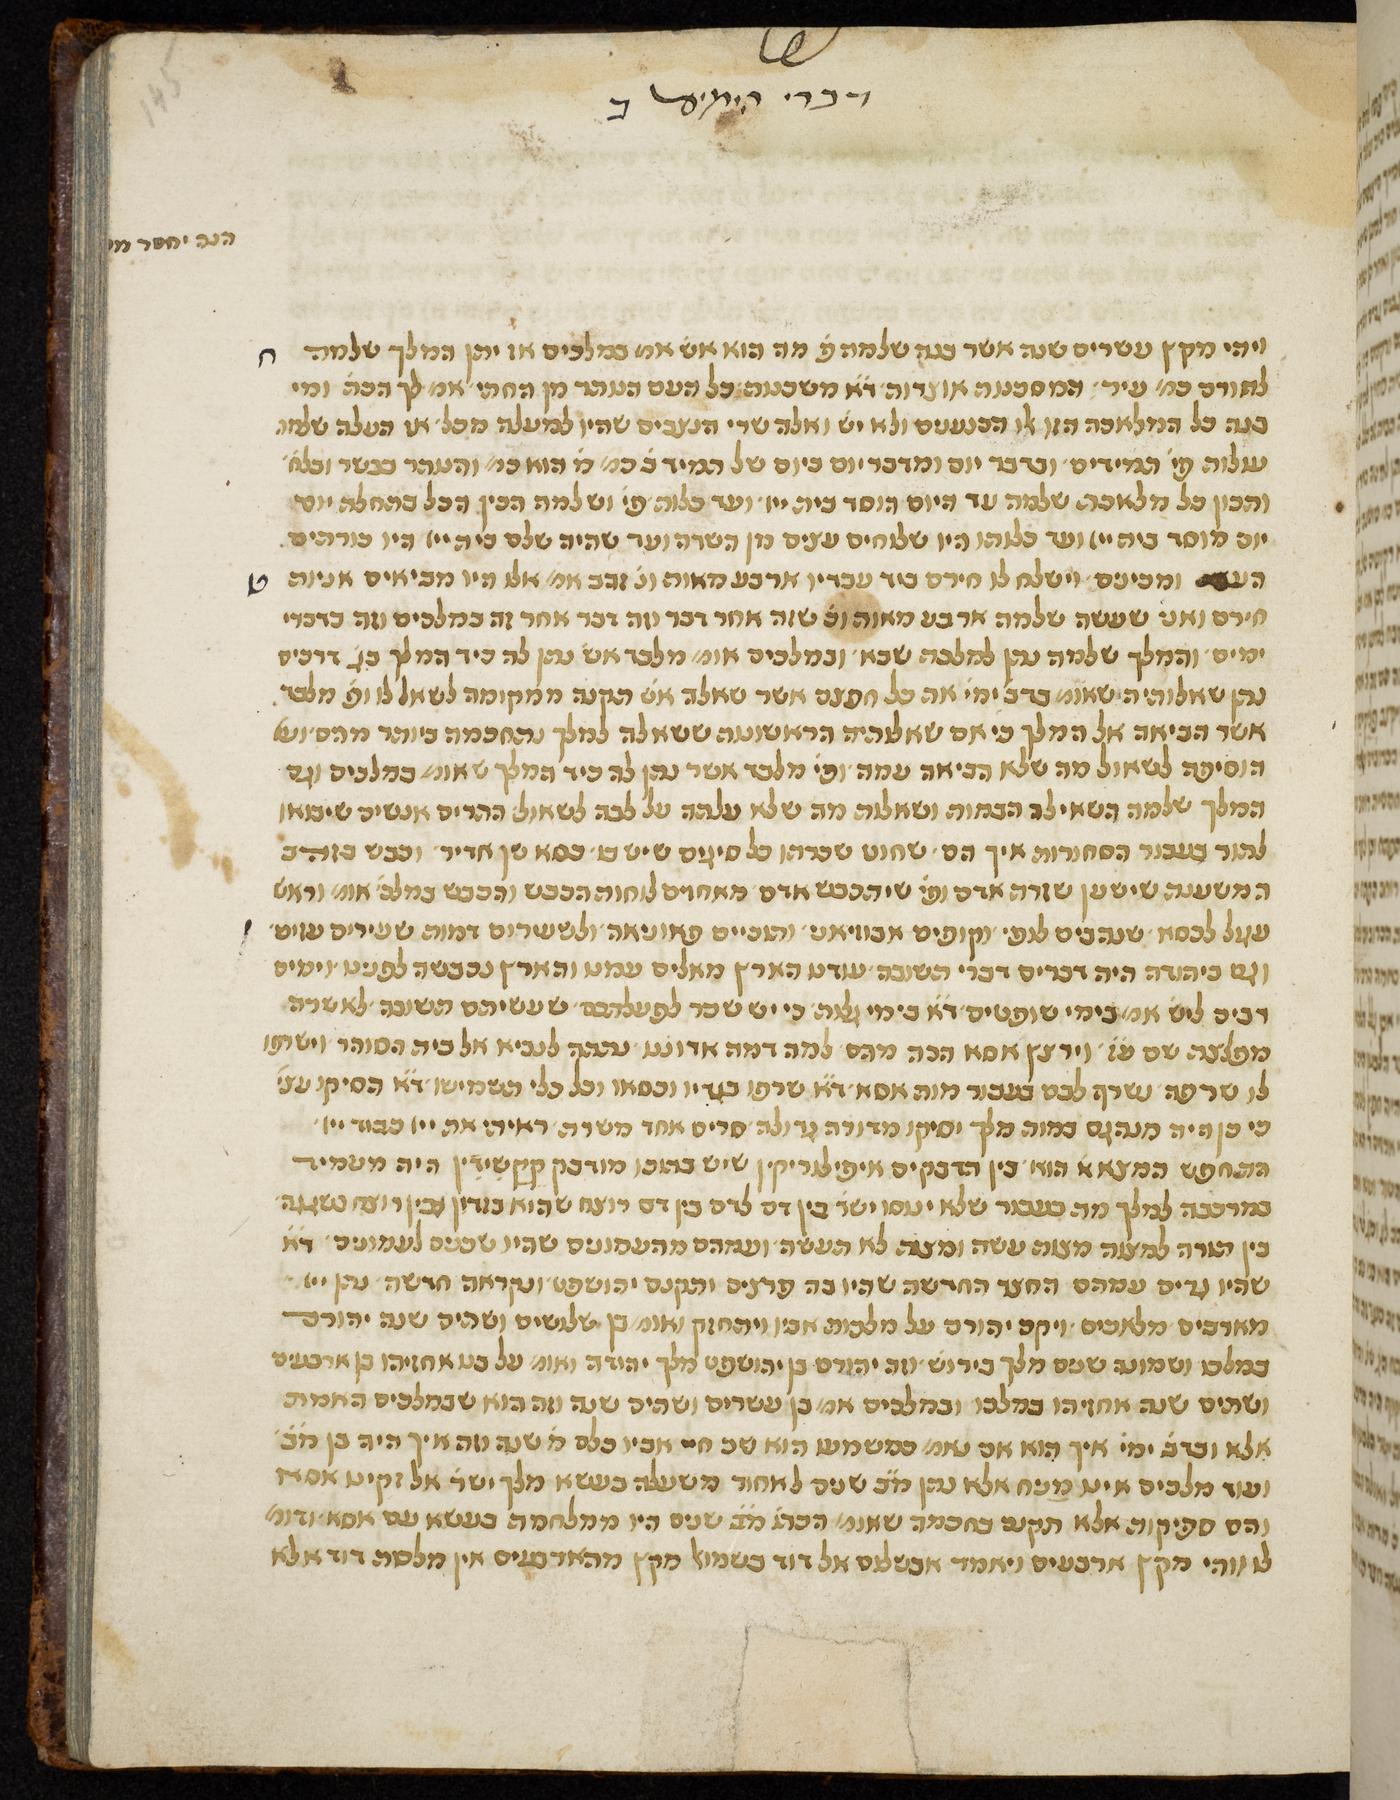 דברי הימים ב
הנה יחסר
ח
ויהי מקץ עשרים שנה אשר בנה שלמה פ׳ מה הוא אש׳ אמ׳ במלכים אז יתן המלך שלמה
לחורם כמ׳ עיר׳ המסכנות אוצרות ד״א משכנות כל העם הנותר מן החתי׳ אמ׳ לך הכה׳ ומי
בנה כל המלאכה הזו אלו הכנענים ולא יש׳ ואלה שרי הנצבים שהיו למעלה מכל׳ אז העלה שלמה
עולות פי׳ תמידים׳ ובדבר יום ומדבר יום ביום של תמיד כמ׳ הוא כמ׳ והנותר בבשר ובלח׳
ותכון כל מלאכת שלמה עד היום הוסד בית ייי׳ ועד כלותו פי׳ ושלמה הכין הכל בתחלה יום
יום מוסד בית ייי׳ ועד כלותו היו שולחים עצים מן השדה ועד שהיה שלם בית ייי׳ היו כורתים
ט
ומביאים׳ וישלח לו חירם ביד עבדיו ארבע מאות ונ׳ זהב אמ׳ אלו היו מביאים אניות
חירם ואני שעשה שלמה ארבע מאות ונ׳ שזה אחר דבר וזה דבר אחר זה במלכים וזה בדברי
ימים׳ והמלך שלמה נתן למלכת שבא׳ ובמלכים אומ׳ מלבד אש׳ נתן לה כיד המלך דרכים
נתן שאלותיה שאומ׳ בדב׳ ימי׳ את כל חפצה אשר שאלה אש׳ תקנה ממקומה לשאול לו ופי׳ מלבד
אשר הביאה אל המלך כי אם שאלותיה הראשונות ששאלה למלך נתחכמה ביותר מהם׳
הוסיפה לשאול מה שלא הביאה עמה׳ ופי׳ מלבד אשר נתן לה כיד המלך שאומ׳ במלכים וגם
המלך שלמה השאילה חכמות ושאלות מה שלא עלתה על לבה לשאול׳ התרים אנשים שיבואו
לתור בעבור הסחורות איך הם׳ שחוט שכרתו כל סיגים שיש בו׳ כסא שן אדיר׳ וכבש בזהב
המשענת שישען שדרת אדם ופי׳ שיהכבש אדם מאחרים לוחות הכבש והכבש במלכ׳ אומ׳ וראש
י
עגל לכסא׳ שנהבים לופי׳ וקופים אבוויאט׳ ותוכיים פאוניאה׳ ולשעירים דמות שעירים עזים׳
וגם ביהודה היה דברים דברי תשובה׳ עודנו הארץ מאלים עמנו והארץ נכבשה לפנינו׳ וימים
רבים ליש׳ אמ׳ בימי שופטים׳ ד״א בימי גלות׳ כי יש שכר לפעלתכם׳ שעשיתם תשובה׳ לאשרה
מפלצת שם ע״ז׳ וירצץ אסא הכה מהם׳ למה דמה אדוננו׳ נתנה לנביא אל בית הסוהר׳ וישרפו
לו שרפה׳ נשרף לבם בעבור מות אסא׳ ד״א שרפו בגדיו וכסאו וכל כלי תשמישו׳ ד״א הסיקו עצי׳
כי כן היה מנהגם במות מלך יסיקו מדורה גדולה׳ סריס אחד משרת׳ ראיתי את ייי׳ כבוד ייי׳
התחפש המצא״א הוא׳ בין הדבקים איפילוריקין שיש בתוכו מודבק קקשידין היה מעמיד
במרכבה למלך מה בעבור שלא ינוסו יש׳ בין דם לדם בין דם רוצח שהוא בזדון ובין רוצח בשגגה׳
בין תורה למצוה מצות עשה ומצות לא תעשה׳ ועמהם מהעמונים שהיו שכנים לעמונים׳ ד״א
שהיו גרים עמהם׳ החצר החדשה שהיו בה פרצים ותקנם יהושפט ונקראה חדשה׳ נתן ייי׳
מארבים׳ מלאכים׳ ויקם יהורם על מלכות אביו ויתחזק ואומ׳ בן שלושים ושתים שנה יהורם
במלכו ושמונה שנים מלך בירוש׳ וזה יהורם בן יהושפט מלך יהודה׳ ואומ׳ על בנו אחזיהו בן ארבעים
ושתים שנה אחזיהו במלכו׳ ובמלכים אמ׳ בן עשרים ושתים שנה וזה הוא שבמלכים האמת
אלא ובדב׳ ימי׳ איך הוא אם נאמ׳ כמשמעו הוא שב חיי אביו כלם מ׳ שנה וזה איך היה בן מ״ב׳
ועוד מלכים אינו מניח אלא נתן מ״ב שנים לאחור משעלה בעשא מלך יש׳ אל זקינו אסא
והם ספיקות אלא תקנו בחכמה שאומ׳ הכת׳ מ״ב שנים היו ממלחמת בעשא עם אסא׳ ודומ׳
לו ויהי מקץ ארבעים ויאמר אבשלום אל דוד בשמוא׳ מקץ מהארבעים אין מלכות דוד אלא